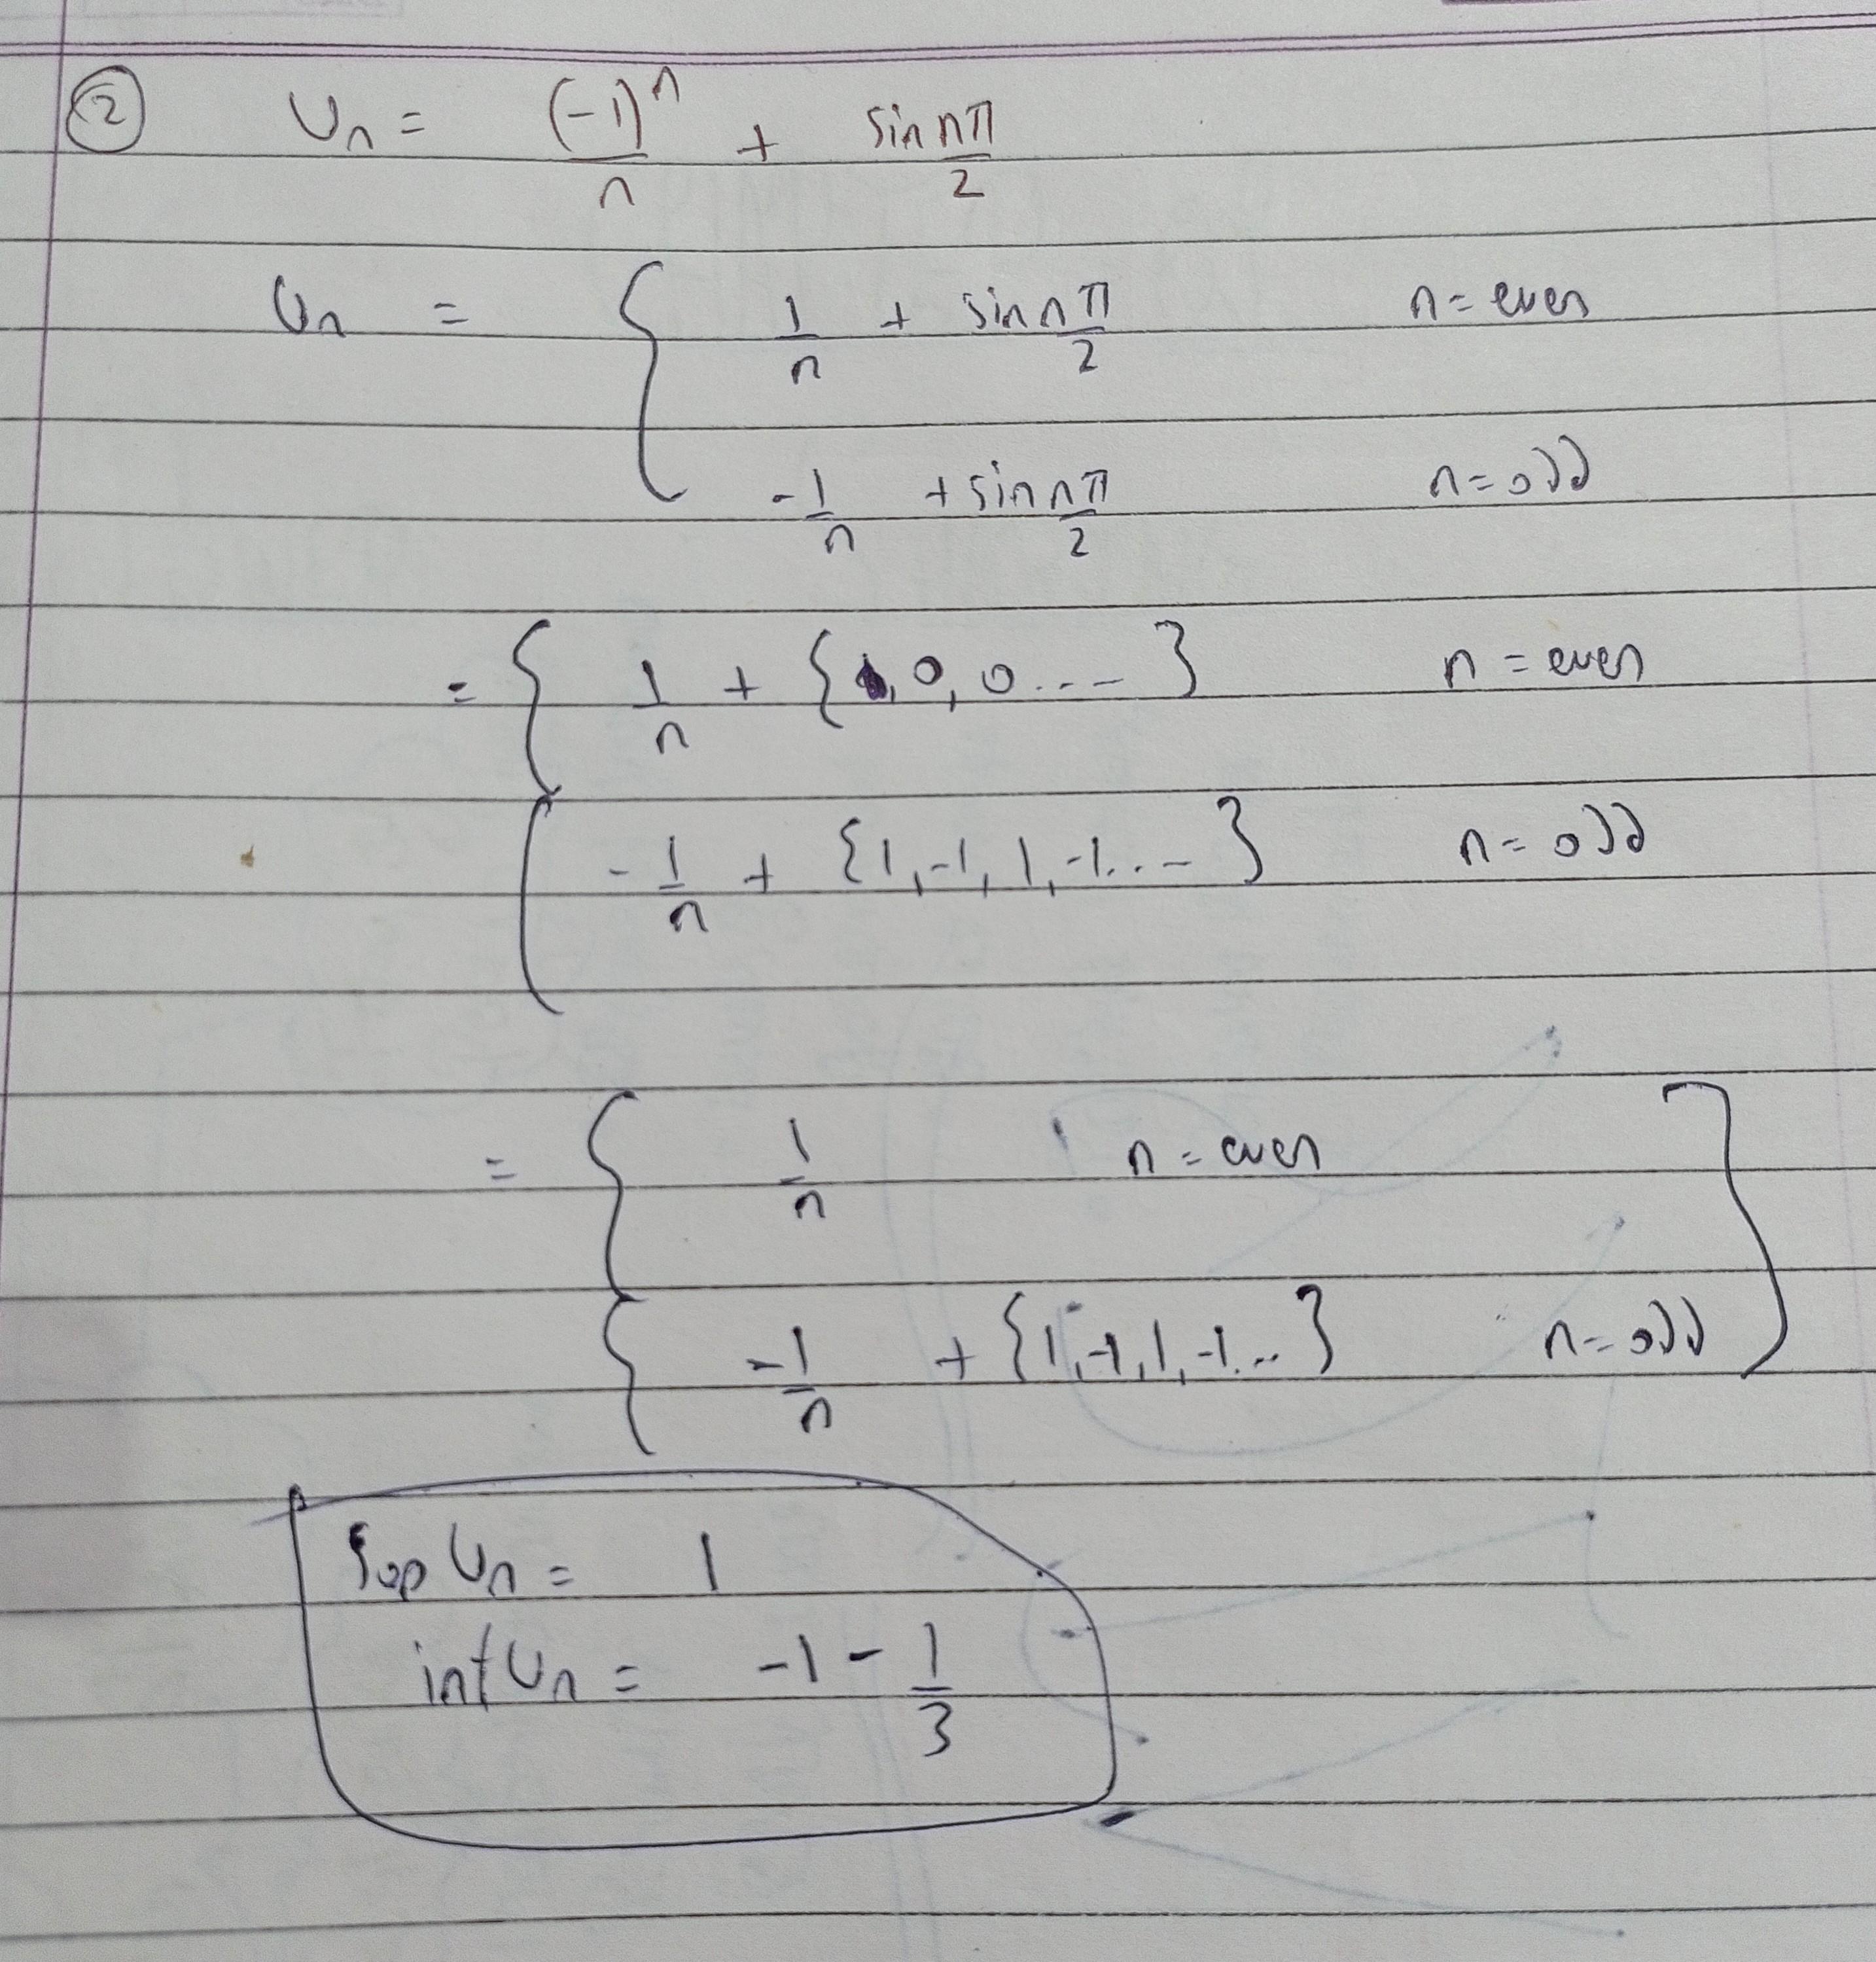 ② Un = (-1)^n/n + sin nπ/2
Un = { 1/n + sin nπ/2 n = even
-1/n + sin nπ/2 n = odd
= { 1/n + { , 0, 0 ... } n = even
-1/n + {1, -1, 1, -1 ... } n = odd
= { 1/n n = even
-1/n + {1, -1, 1, -1 ... } n = odd
Sup Un = 1
inf Un = -1 - 1/3